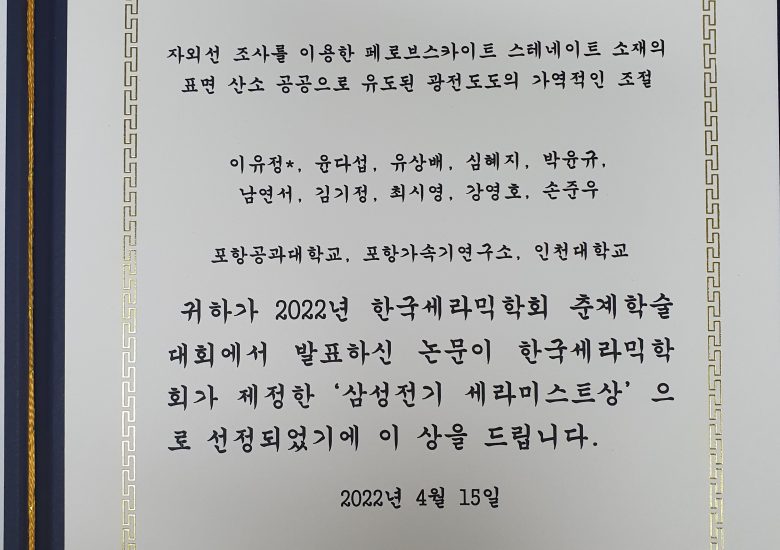 자외선 조사를 이용한 페로브스카이트 스테네이트 소재의
표면 산소 공공으로 유도된 광전도도의 가역적인 조절
이유정*, 윤다섭, 유상배, 심혜지, 박윤규,
남연서, 김기정, 최시영, 강영호, 손준우
포항공과대학교, 포항가속기연구소, 인천대학교
귀하가 2022년 한국세라믹학회 춘계학술
대회에서 발표하신 논문이 한국세라믹학
회가 제정한 ‘삼성전기 세라미스트상’ 으
로 선정되었기에 이 상을 드립니다.
2022년 4월 15일